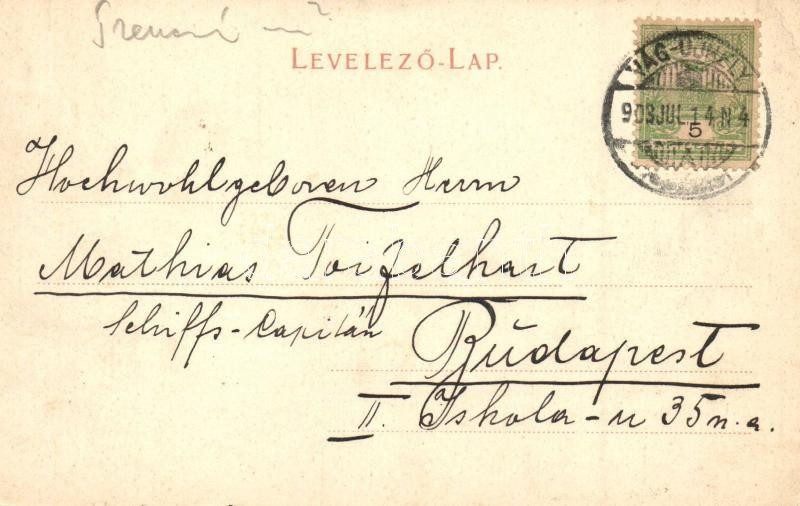 LEVELEZŐ-LAP.
VÁG-UJHELY
903 JUL 14 N 4
5
Hochwohlgeboren Herrn
Mathias Toifelhart
Schiffs-Capitän
Budapest
II. Iskola-u 35 n.a.